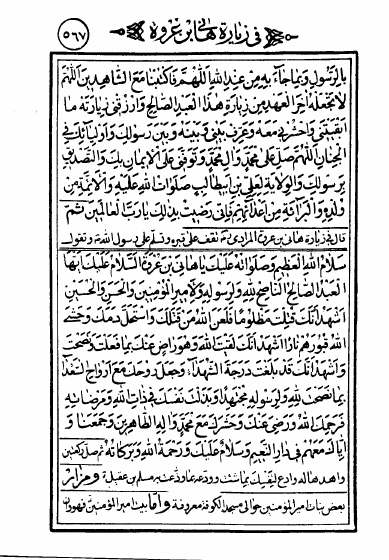 في زيارة هاني بن عروة
٥٦٧
بالرسول وبما جاء به من عند الله اللهم فاكتبنا مع الشاهدين اللهم
لا تجعله آخر العهد من زيارة هذا العبد الصالح وارزقني زيارته ما
ابقيتني واحشرني معه وعرف بيني وبينه وبين رسولك واوليائك في
الجنان اللهم صل على محمد وال محمد وتوفني على الايمان بك والتصديق
برسولك والولاية لعلي بن ابيطالب صلوات الله عليه والائمة من
ولده والبرائة من اعدائهم فاني رضيت بذلك يا رب العالمين ثم
قال في زيارة هاني بن عروة المرادي ره تقف على قبره وتسلم على رسول الله وتقول
سلام الله العظيم وصلواته عليك يا هاني بن عروة السلام عليك ايها
العبد الصالح الناصح لله ولرسوله ولامير المؤمنين والحسن والحسين
اشهد انك قتلت مظلوما فلعن الله من قتلك واستحل دمك وحشا
الله قبورهم نارا اشهد انك لقيت الله وهو راض عنك بما فعلت ونصحت
واشهد انك قد بلغت درجة الشهداء وجعل روحك مع ارواح السعداء
بما نصحت لله ولرسوله مجتهدا وبذلت نفسك في ذات الله ومرضاته
فرحمك الله ورضي عنك وحشرك مع محمد واله الطاهرين وجمعنا و
اياك معهم في دار النعيم وسلام عليك ورحمة الله وبركاته ثم صل ركعتين
واهدها له وادع لنفسك بما شئت وودعه بما ودعت مسلم بن عقيل ومزار
بعض بنات امير المؤمنين حوالي مسجد الكوفة معروفة واما بيت امير المؤمنين فهو